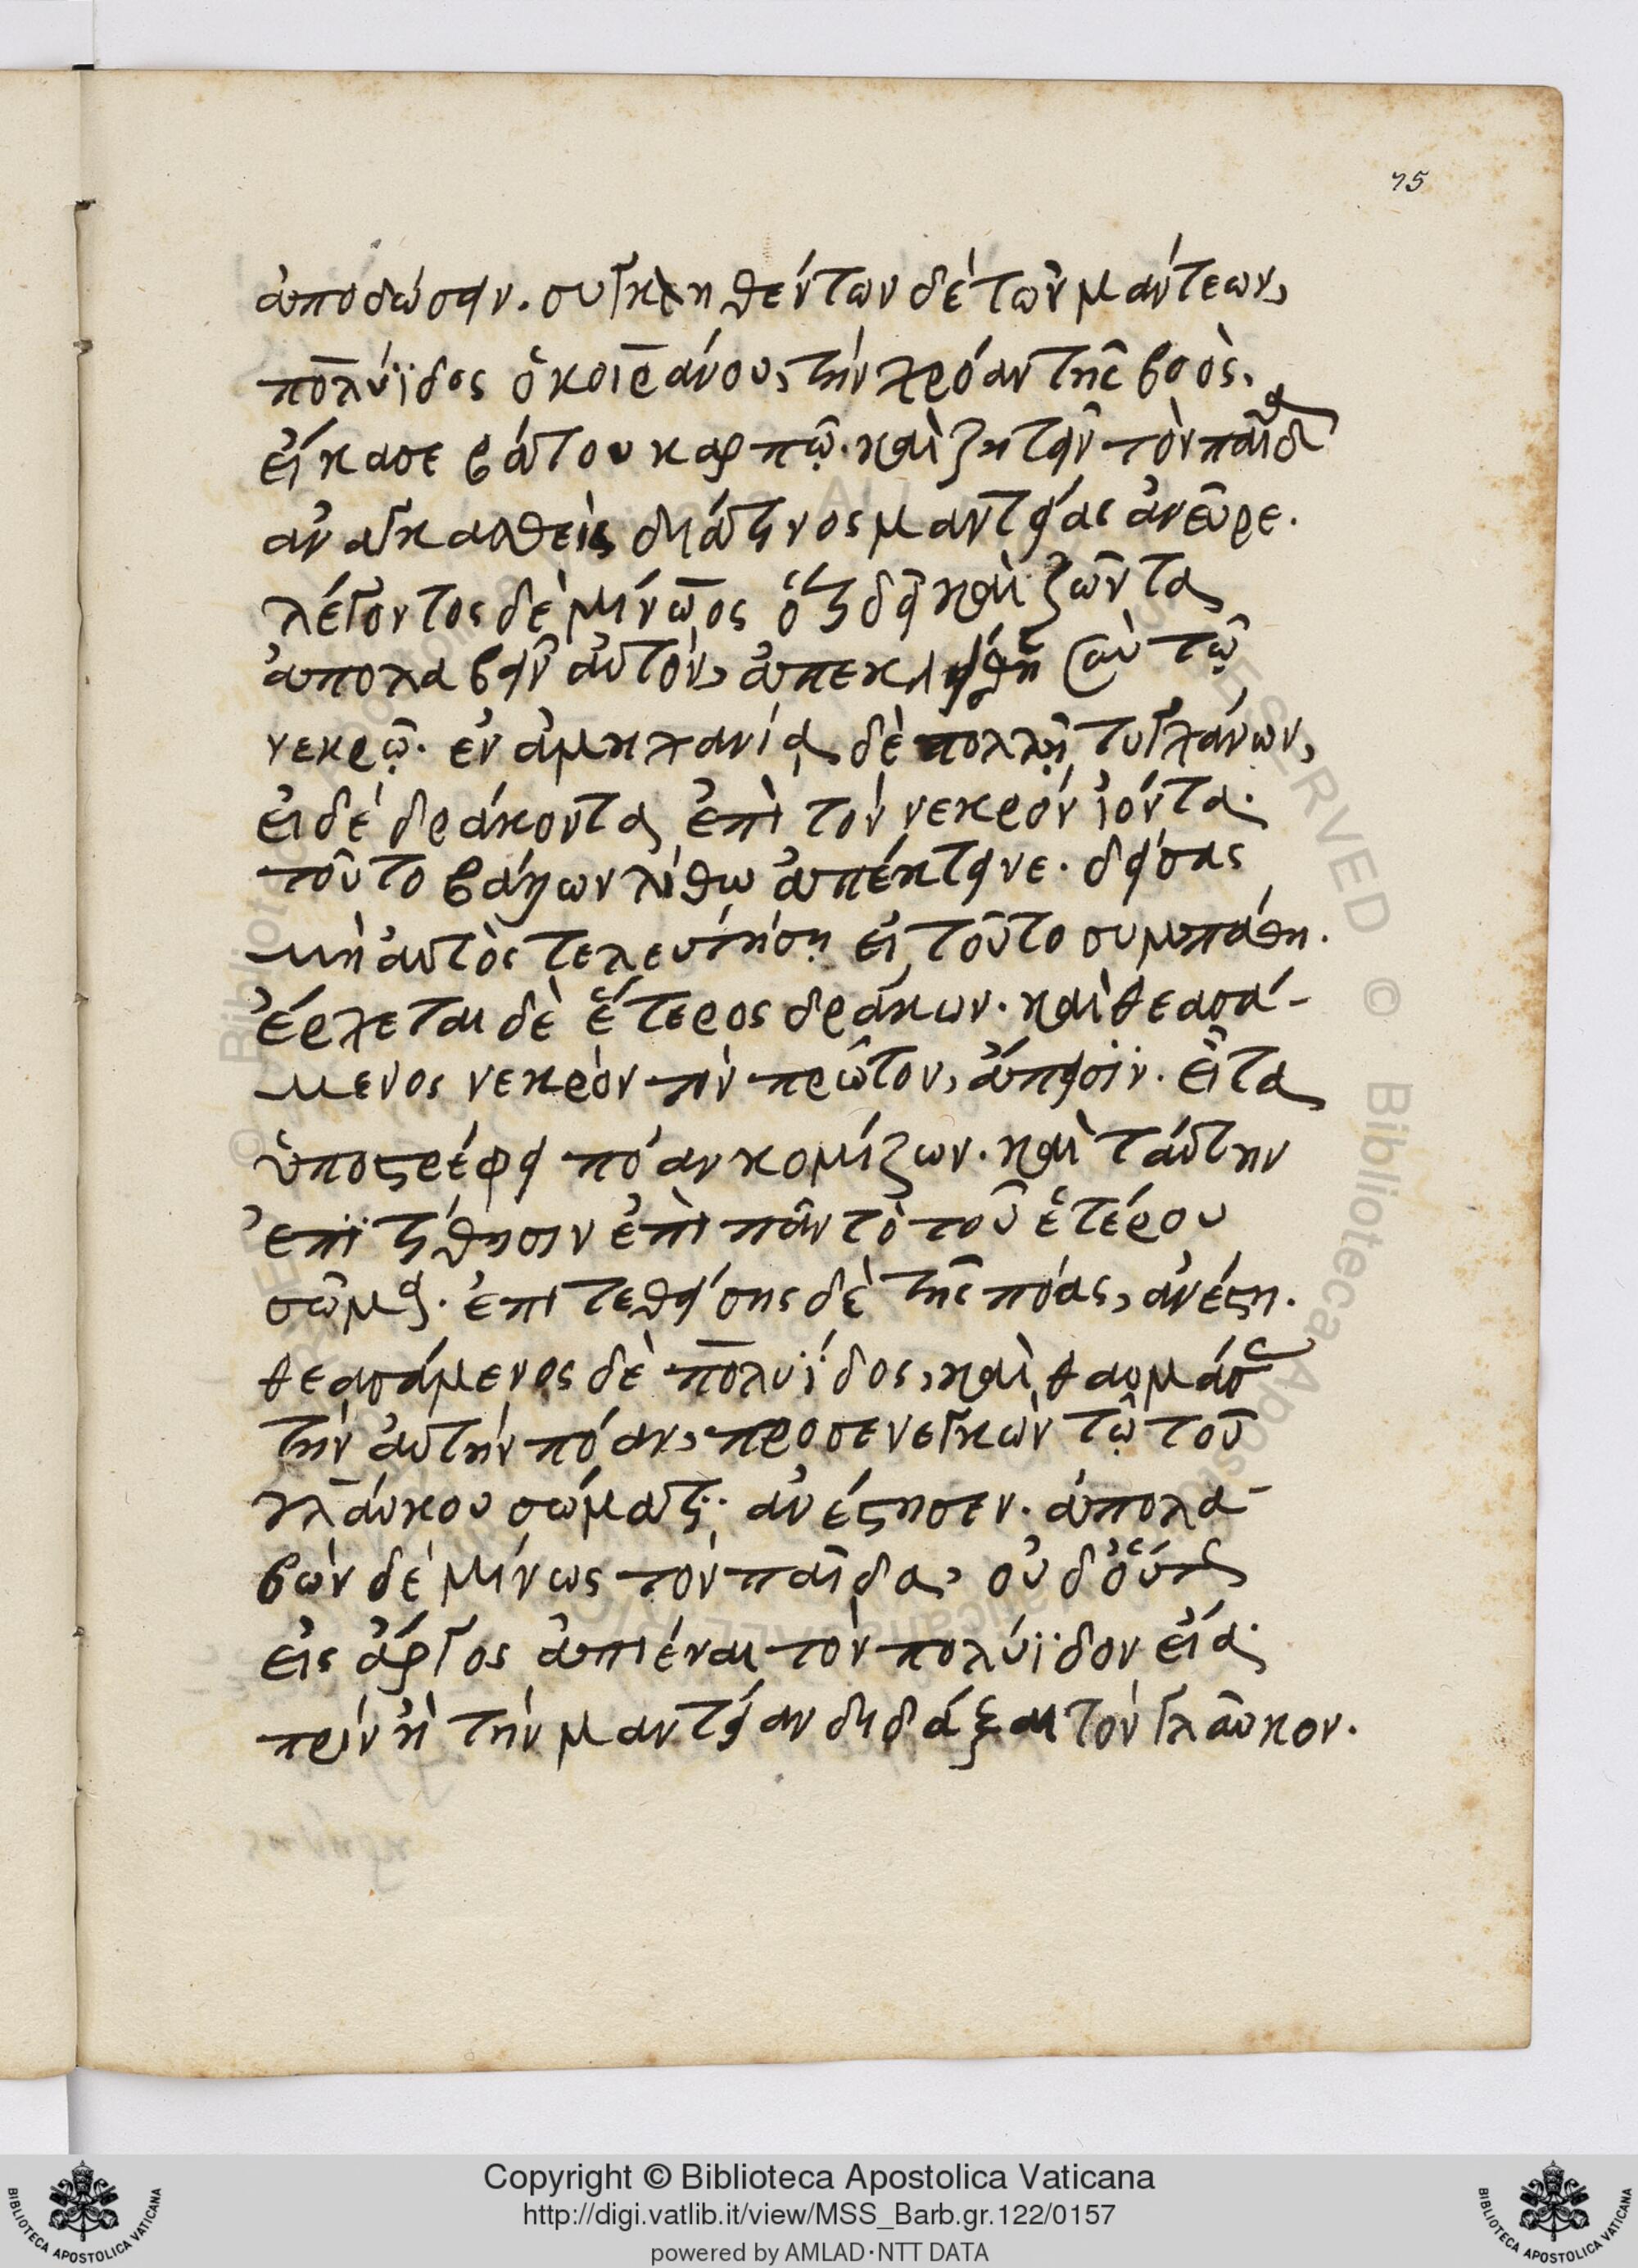 75
ἀποδώσειν. συγκληθέντων δὲ τῶν μάντεων,
πολύϊδος ὁ κοιράνου, τὴν χρόαν τῆς βοὸς,
εἴκασε βάτου καρπῷ. καὶ ζητεῖν τὸν παῖδα
ἀναγκασθεὶς διά τινος μαντείας ἀνεῦρε.
λέγοντος δὲ μίνωος ὅτι δεῖ καὶ ζῶντα
ἀπολαβεῖν αὐτόν, ἀπεκλείσθη σὺν τῷ
νεκρῷ. ἐν ἀμηχανίᾳ δὲ πολλῇ τυγχάνων,
εἶδε δράκοντα ἐπὶ τὸν νεκρὸν ἰόντα.
τοῦτο βάλλων λίθω ἀπέκτεινε. δείσας
μὴ αὐτὸς τελευτήσῃ εἰ τοῦτο συμπάθη.
ἔρχεται δὲ ἕτερος δράκων. καὶ θεασά-
μενος νεκρὸν τὸν πρῶτον, ἄπεισιν. εἶτα
ὑποστρέφει πόαν κομίζων. καὶ ταύτην
ἐπιτίθησιν ἐπὶ πᾶν τὸ τοῦ ἑτέρου
σῶμα. ἐπιτεθείσης δὲ τῆς πόας, ἀνέστη.
θεασάμενος δὲ πολυΐδος, καὶ θαυμάσας
τὴν αὐτὴν πόαν, προσενεγκὼν τῷ τοῦ
γλάυκου σώματι. ἀνέστησεν. ἀπολα-
βὼν δὲ μίνως τὸν παῖδα, οὐδ' οὕτως
εἰς ἄργος ἀπιέναι τὸν πολύϊδον εἴα.
πρὶν ἢ τὴν μαντείαν διδάξαι τὸν γλαῦκον.
Copyright © Biblioteca Apostolica Vaticana
http://digi.vatlib.it/view/MSS_Barb.gr.122/0157
powered by AMLAD·NTT DATA
BIBLIOTECA APOSTOLICA VATICANA
BIBLIOTECA APOSTOLICA VATICANA